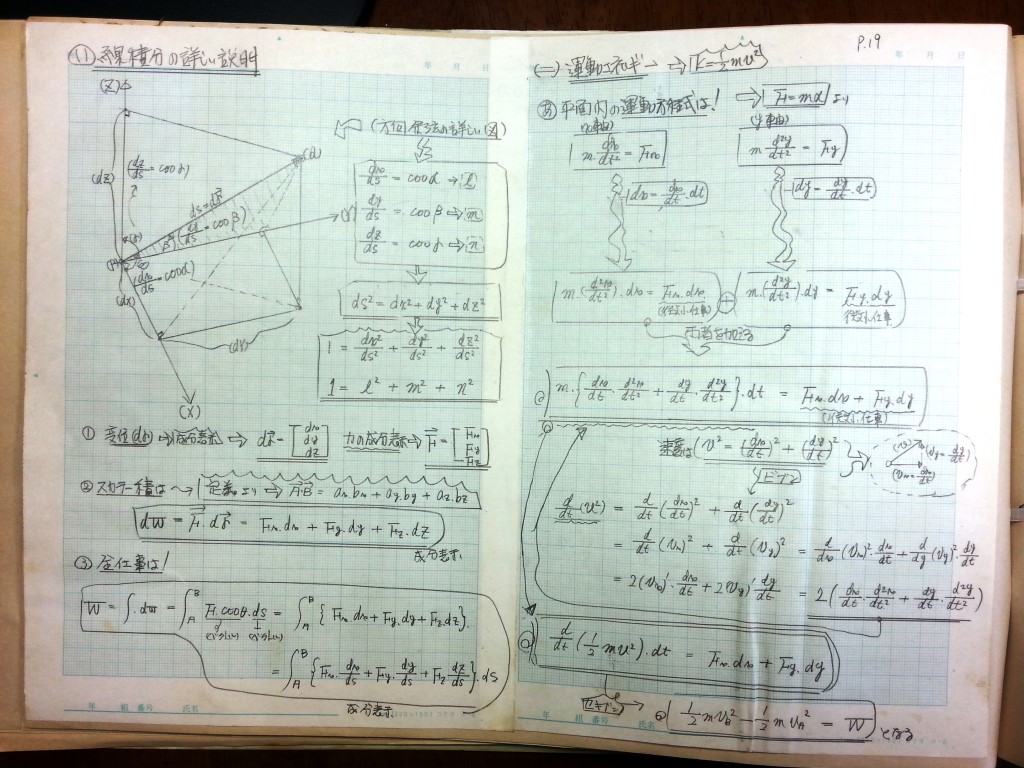 (11) 線積分の詳しい説明
(Z)
(dz)
(dz/ds = cosγ)
ds = dr
(dy/ds = cosβ)
(Y)
(dx/ds = cosα)
(dx)
(dY)
(X)
(方向余弦の詳しい図)
dx/ds = cosα → l
dy/ds = cosβ ⇒ m
dz/ds = cosγ → n
ds² = dx² + dy² + dz²
1 = dx²/ds² + dy²/ds² + dz²/ds²
1 = l² + m² + n²
① 変位(dr) ⇒ 成分表示 ⇒ dr = [dx dy dz] 力の成分表示 ⇒ F = [Fx Fy Fz]
② スカラー積は → 定義より ⇒ A・B = ax.bx + ay.by + az.bz
dw = F.dr = Fx.dx + Fy.dy + Fz.dz
成分表示
③ 全仕事は!
W = ∫.dw = ∫AB F.cosθ.ds = ∫AB {Fx.dx + Fy.dy + Fz.dz}.
= ∫AB {Fx.dx/ds + Fy.dy/ds + Fz.dz/ds}.ds
成分表示
年 組 番号 氏名
P.19
年 月 日
(一) 運動エネルギー → K = 1/2 mv²
あ 平面内の運動方程式は! ⇒ F = mα より
(x軸)
(y軸)
m d²x/dt² = Fx
m d²y/dt² = Fy
dx = dx/dt.dt
dy = dy/dt.dt
m.(d²x/dt²).dx = Fx.dx
(微小仕事)
⊕
m.(d²y/dt²).dy = Fy.dy
微小仕事
両者を加える
m.{dx/dt.d²x/dt² + dy/dt.d²y/dt²}.dt = Fx.dx + Fy.dy
(微小仕事)
速度は (v² = (dx/dt)² + (dy/dt)²)
(v)
(vy = dy/dt)
(vx = dx/dt)
d/dt(v²) = d/dt(dx/dt)² + d/dt(dy/dt)²
= d/dt(vx)² + d/dt(vy)² = d/dx(vx)².dx/dt + d/dy(vy)².dy/dt
= 2(vx)'.dx/dt + 2(vy)'dy/dt = 2(dx/dt.d²x/dt² + dy/dt.d²y/dt²)
d/dt(1/2 mv²).dt = Fx.dx + Fy.dy
1/2 mvB² − 1/2 mvA² = W となる
年 組 番号 氏名